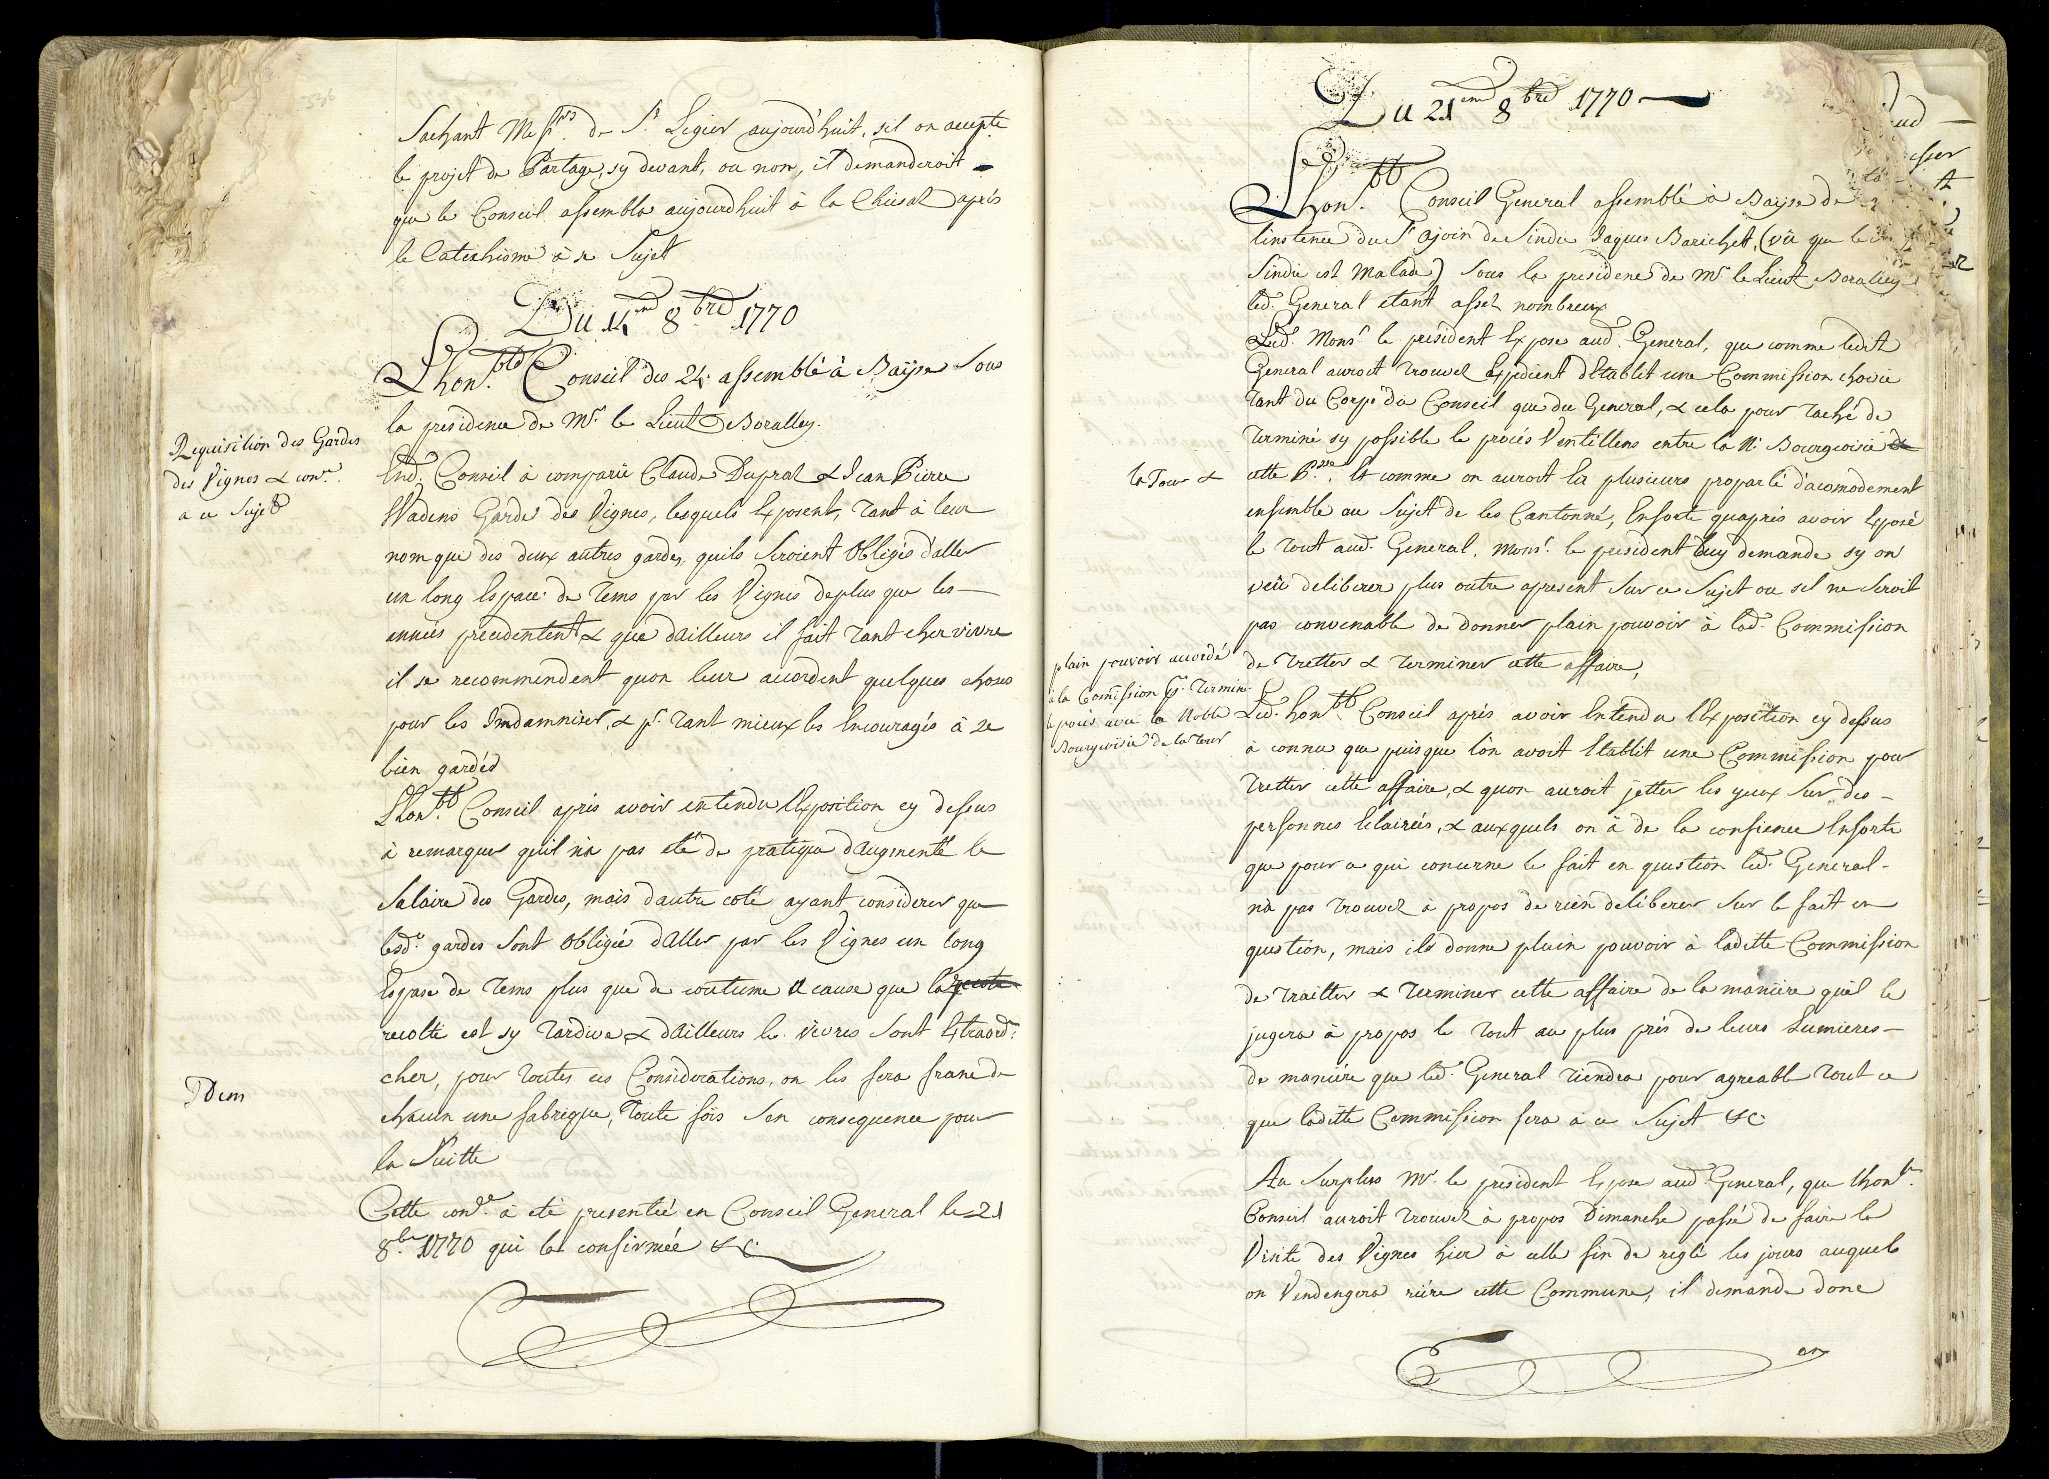 336
Sachant Mess.rs de S.t Legier aujourd'huit, sil on accepte
le projet de Partage, sy devant, ou non, il demanderoit
que le Conseil assembla aujourdhuit à la Chiesaz après
le Catechisme à ce Sujet
Du 14.me 8.bre 1770
Lhon.ble Conseil des 24. assemblé à Bayse sous
la presidence de M.r le Lieut. DeBoralley.
Requisition des Gardes
des Vignes & con.ce
a ce Sujet
End. Conseil à comparu Claude Dupraz & Jean Pierre
Wadens Gardes des Vignes, lesquels Exposent, tant à leur
nom que des deux autres gardes, quils Seroient Obligés d'aller
un long Espace de tems par les Vignes deplus que les
années precedentent & que dailleurs il fait tant cher vivre
il se recommendent quon leur accordent quelques choses
pour les Indamniser, & p.r tant mieux les Encouragés à ce
bien gardés
Lhon.ble Conseil après avoir entendu l'Exposition cy dessus
à remarquer quil nà pas été de pratique daugmenté le
Salaire des Gardes, mais dautre coté ayant considerer que
lesd. gardes sont obligée dAller par les Vignes un long
Espase de tems plus que de coutume à cause que la
recolte est sy tardive & dailleurs les vivres sont Extraord.
Idem
cher, pour toutes ces Considerations, on les fera franc de
chacun une fabrique, toute fois Sen consequence pour
la Suitte
Cette con.ce à été presentée en Conseil General le 21
8.bre 1770 qui la confirmée &c.
Du 21.me 8.bre 1770
Lhon.ble Conseil General assemblé à Bayse de
linstence du S.r ajoin de Sindic Jaques Barichet, (vû que le
Sindic est Malade) sous la presidence de M.r le Lieut Boralley
led. General etant assez nombreux
Led. Mons.r le president Expose aud. General, que comme ledit
General auroit trouvez Expedient d'Etablit une Commission choisie
tant du Corps du Conseil que du General, & cela pour taché de
terminé sy possible le procès Ventillens entre la N. Bourgeoisie de
la Tour &
cette P.sse, Et comme on auroit là plusieurs proparlé dacomodement
ensemble au Sujet de les Cantonné, Ensorte quaprès avoir Exposé
le tout aud. General. Mons.r le president luy demande sy on
veû deliberer plus outre apresent Sur ce Sujet ou sil ne seroit
pas convenable de donner plain pouvoir à lad. Commission
de tretter & terminer cette affaire,
plain pouvoir accordé
à la Comission p.r Termin.
le procès avec la Noble
Bourgeoisie de la tour
Led. hon.ble Conseil après avoir Entendu l'Exposition cy dessus
à connu que puisque lon avoit Etablit une Commission pour
tretter cette affaire, & quon auroit jetter les yeux Sur des
personnes Eclairées, & auxquels on à de la confience Ensorte
que pour ce qui concerne le fait en question led. General
nà pas trouvez à propos de rien deliberer Sur le fait en
question, mais ils donne plain pouvoir à laditte Commission
de traitter & terminer cette affaire de la manière quel le
jugera à propos le tout au plus près de leurs Lumieres
de manière que led. General tiendra pour agreable tout ce
que laditte Commission fera à ce Sujet &c
Au Surplus M.r le president Expose aud. General, que lhon.ble
Conseil auroit trouvez à propos Dimanche passé de faire la
Visite des Vignes hier à celle fin de reglé les jours auquels
on Vendengera rière cette Commune, il demande donc